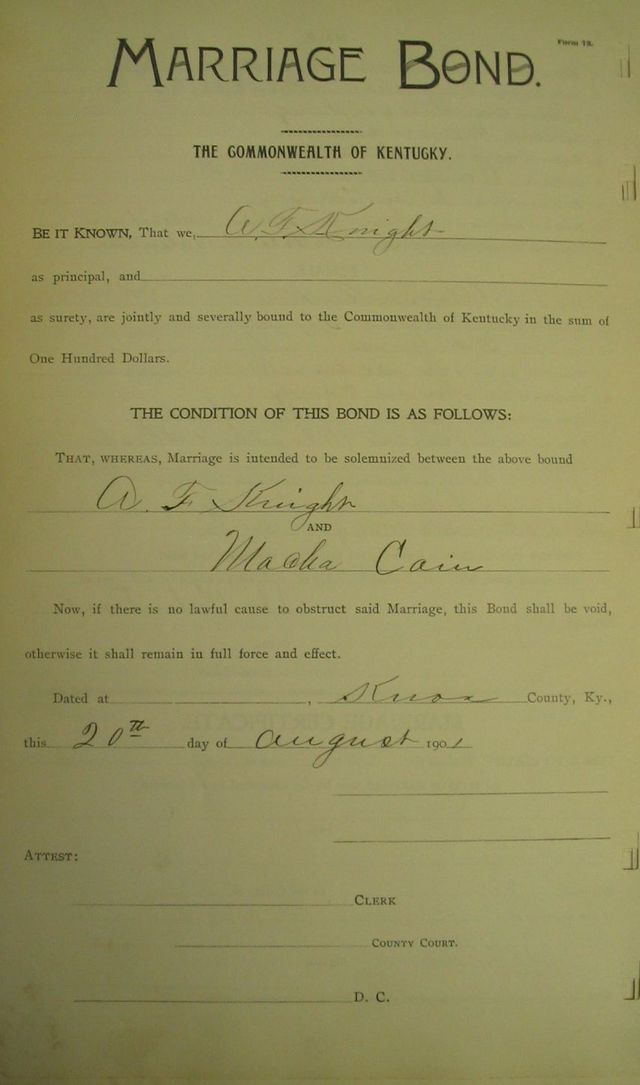 Form 18.
MARRIAGE BOND.
THE COMMONWEALTH OF KENTUCKY.
BE IT KNOWN, That we, A. F. Knight
as principal, and
as surety, are jointly and severally bound to the Commonwealth of Kentucky in the sum of
One Hundred Dollars.
THE CONDITION OF THIS BOND IS AS FOLLOWS:
THAT, WHEREAS, Marriage is intended to be solemnized between the above bound
A. F Knight
AND
Cain
Now, if there is no lawful cause to obstruct said Marriage, this Bond shall be void,
otherwise it shall remain in full force and effect.
Dated at , Knox County, Ky.,
this 20th day of August 1901
ATTEST:
CLERK
COUNTY COURT.
D. C.